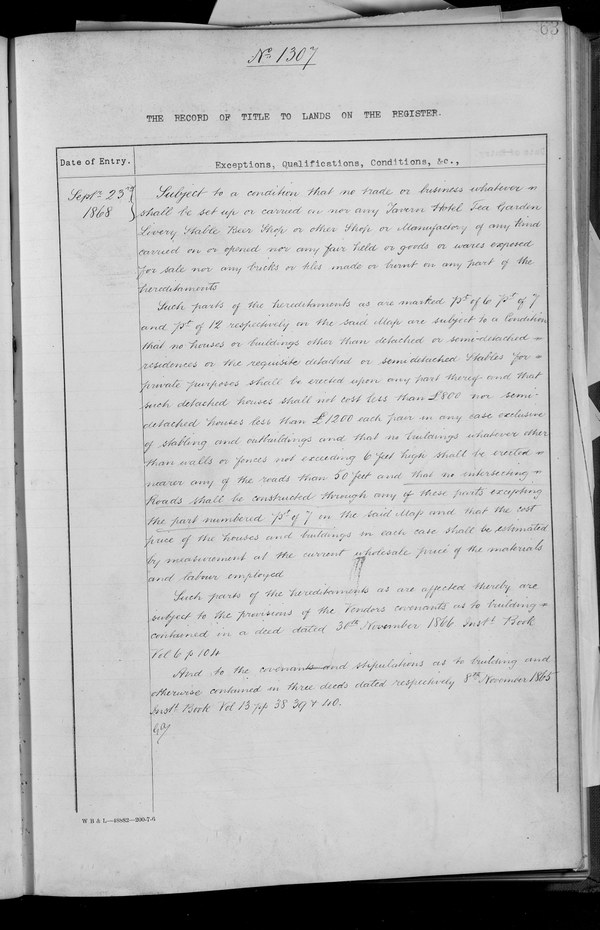 63
No. 1307
THE RECORD OF TITLE TO LANDS ON THE REGISTER.
Date of Entry.
Exceptions, Qualifications, Conditions, &c.,
Septr. 23rd
1868
Subject to a condition that no trade or business whatever
shall be set up or carried on nor any Tavern Hotel Tea Garden
Livery Stable Beer Shop or other Shop or Manufactory of any kind
carried on or opened nor any fair held or goods or wares exposed
for sale nor any bricks or tiles made or burnt on any part of the
hereditaments
Such parts of the hereditaments as are marked pt. of 6 pt. of 7
and pt. of 12 respectively on the said Map are subject to a Condition
that no houses or buildings other than detached or semi-detached
residences or the requisite detached or semidetached Stables for
private purposes shall be erected upon any part thereof and that
such detached houses shall not cost less than £800 nor semi-
detached houses less than £1200 each pair in any case exclusive
of stabling and outbuildings and that no buildings whatever other
than walls or fences not exceeding 6 feet high shall be erected
nearer any of the roads than 50 feet and that no intersecting
Roads shall be constructed through any of these parts excepting
the part numbered pt. of 7 on the said Map and that the cost
price of the houses and buildings in each case shall be estimated
by measurement at the current wholesale price of the materials
and labour employed
Such parts of the hereditaments as are affected thereby are
subject to the provisions of the Vendors covenants as to building
contained in a deed dated 30th November 1866 Inst. Book
Vol 6 p 104
And to the covenants and stipulations as to building and
otherwise contained in three deeds dated respectively 8th November 1865
Inst. Book Vol 13 pp 38 39 & 40.
W B & L—49882—200-7-6